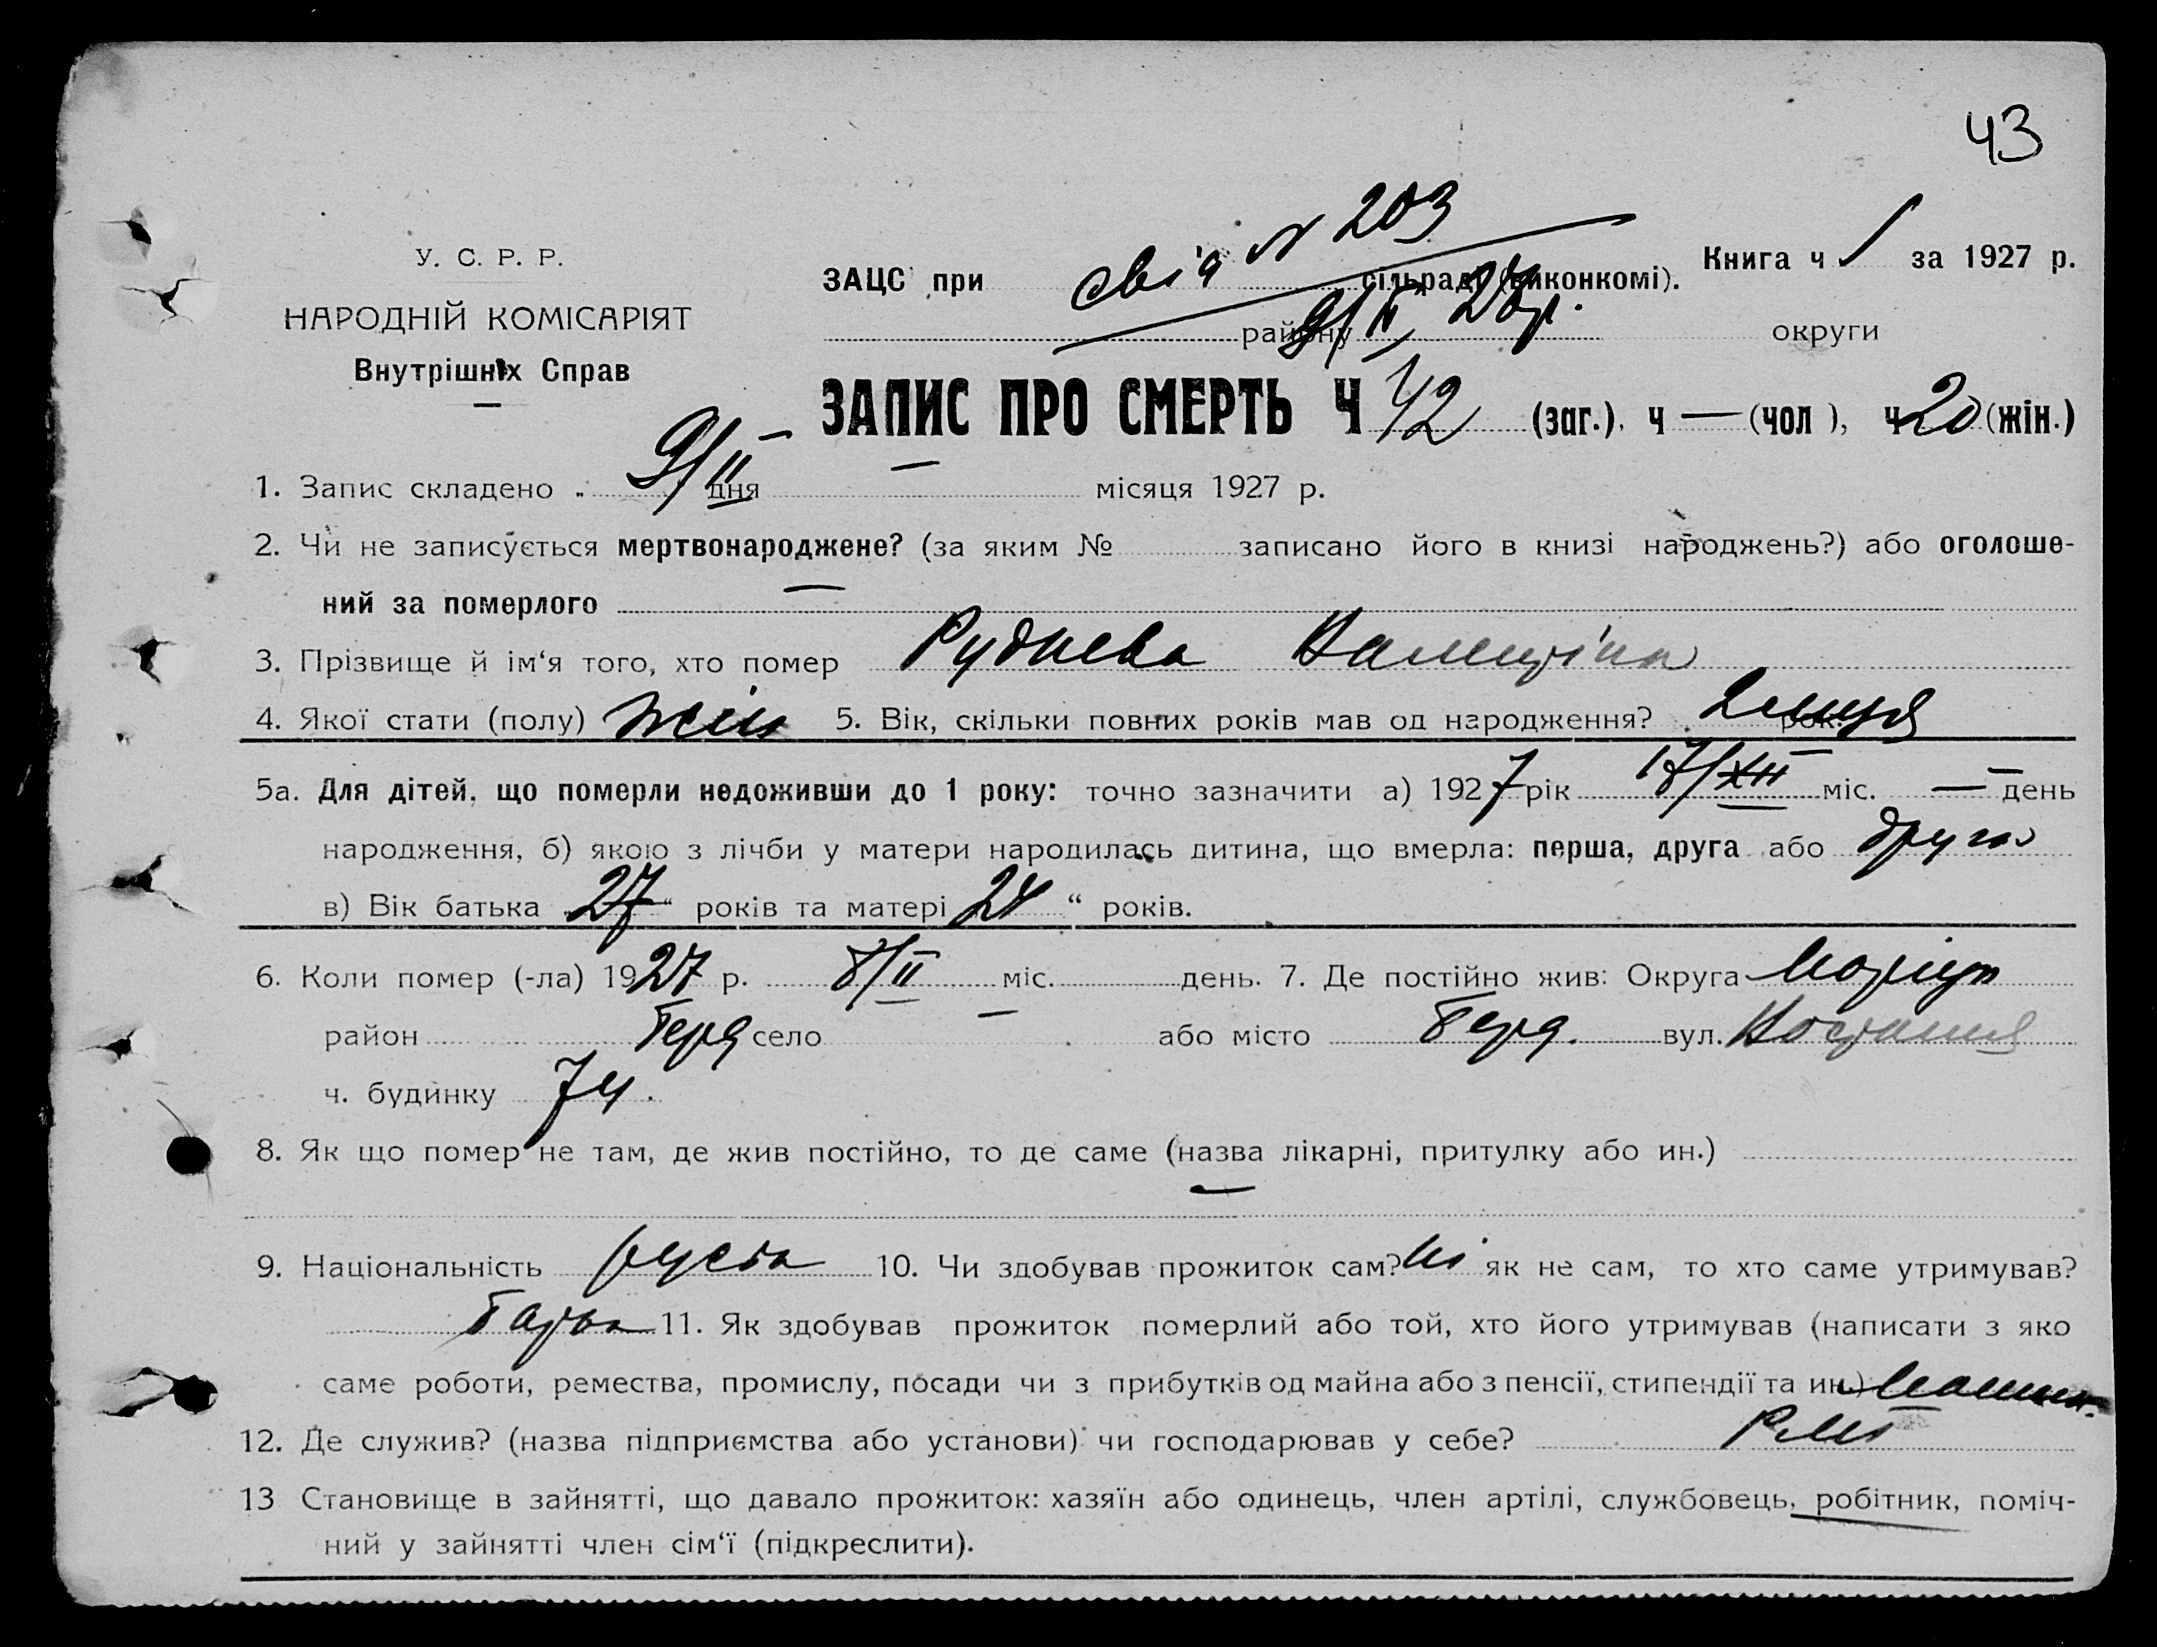 43
свід N 203
У. С. Р. Р.
ЗАЦС при сільраді (виконкомі). Книга ч 1 за 1927 р.
НАРОДНІЙ КОМІСАРІЯТ
району 9/II 28р. округи
Внутрішніх Справ
ЗАПИС ПРО СМЕРТЬ Ч 42 (заг.). ч — (чол ), ч 20 (жін.)
1. Запис складено „ 9/II дня — місяця 1927 р.
2. Чи не записується мертвонароджене? (за яким № записано його в книзі народжень?) або оголоше-
ний за померлого —
3. Прізвище й ім‘я того, хто помер Руднева Валентіна
4. Якої стати (полу) жін 5. Вік, скільки повних років мав од народження? 2 місяця рок.
5а. Для дітей, що померли недоживши до 1 року: точно зазначити а) 1927 рік 17/XII міс. — день
народження, б) якою з лічби у матери народилась дитина, що вмерла: перша, друга або друга
в) Вік батька „27“ років та матері 24 “ років.
6. Коли помер (-ла) 1927 р. 8/II міс. — день. 7. Де постійно жив: Округа Маріуп
район Берд село або місто Берд. вул.
ч. будинку 74.
8. Як що помер не там, де жив постійно, то де саме (назва лікарні, притулку або ин.)
—
9. Національність руська 10. Чи здобував прожиток сам? Ні як не сам, то хто саме утримував?
Батько 11. Як здобував прожиток померлий або той, хто його утримував (написати з яко
саме роботи, ремества, промислу, посади чи з прибутків од майна або з пенсії, стипендії та ин.) Машин.
12. Де служив? (назва підприємства або установи) чи господарював у себе?
13 Становище в зайнятті, що давало прожиток: хазяїн або одинець, член артілі, службовець, робітник, поміч-
ний у зайнятті член сім‘ї (підкреслити).